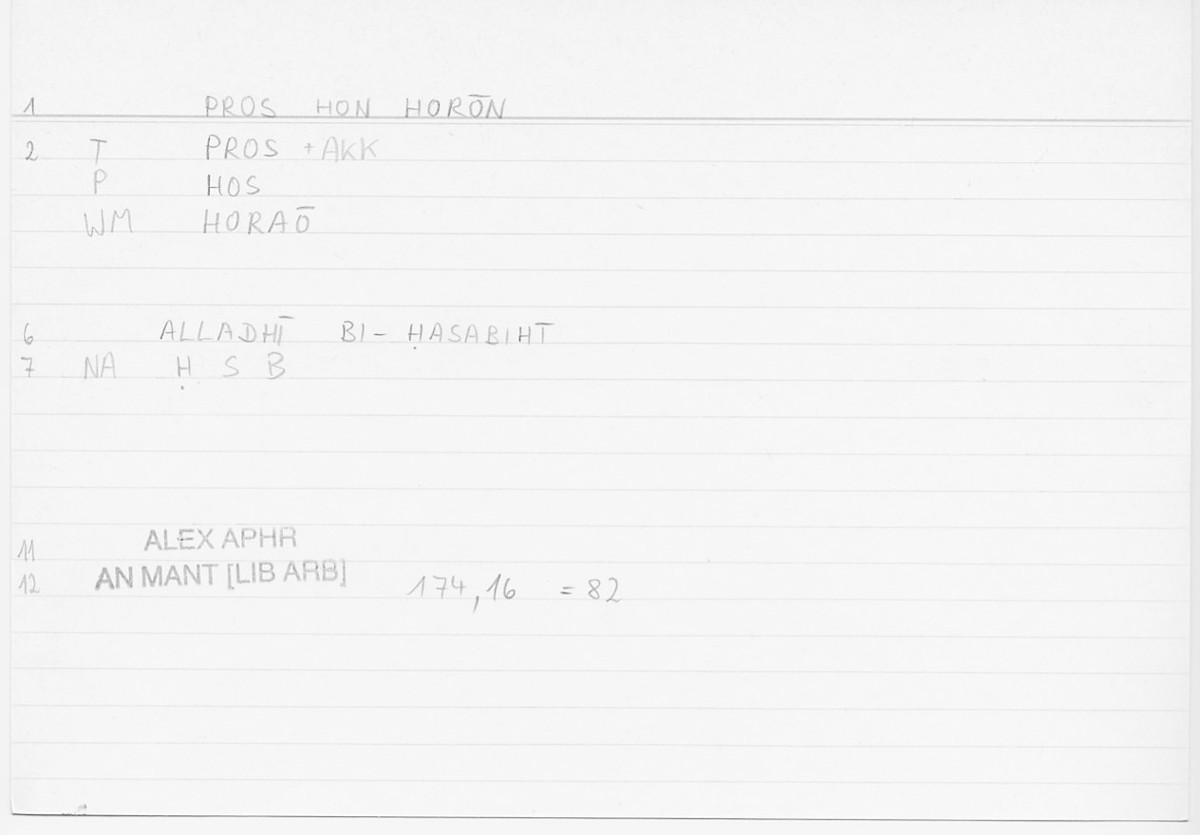 1 PROS HON HORŌN
2 T PROS + AKK
P HOS
WM HORAŌ
6 ALLADHĪ BI- ḤASABIHĪ
7 NA Ḥ S B
11 ALEX APHR
12 AN MANT [LIB ARB] 174,16 = 82